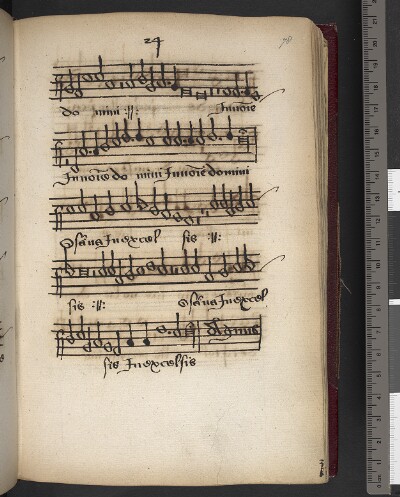 24
78
do mini :||: In noīe
In noīe do mini In noīe domini
Osāna In excel sis :||:
sis :||: Osāna In excel
Agnus
sis In excelsis